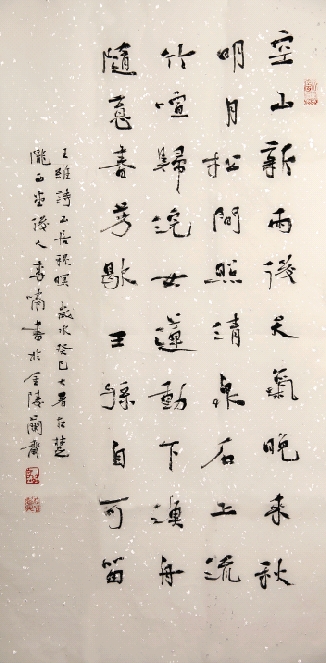 空山新雨後天氣晚來秋
明月松間照清泉石上流
竹喧歸浣女蓮動下漁舟
隨意春芳歇王孫自可留
王維詩山居秋暝 歲次癸巳
後人李 書於金陵蘭齋